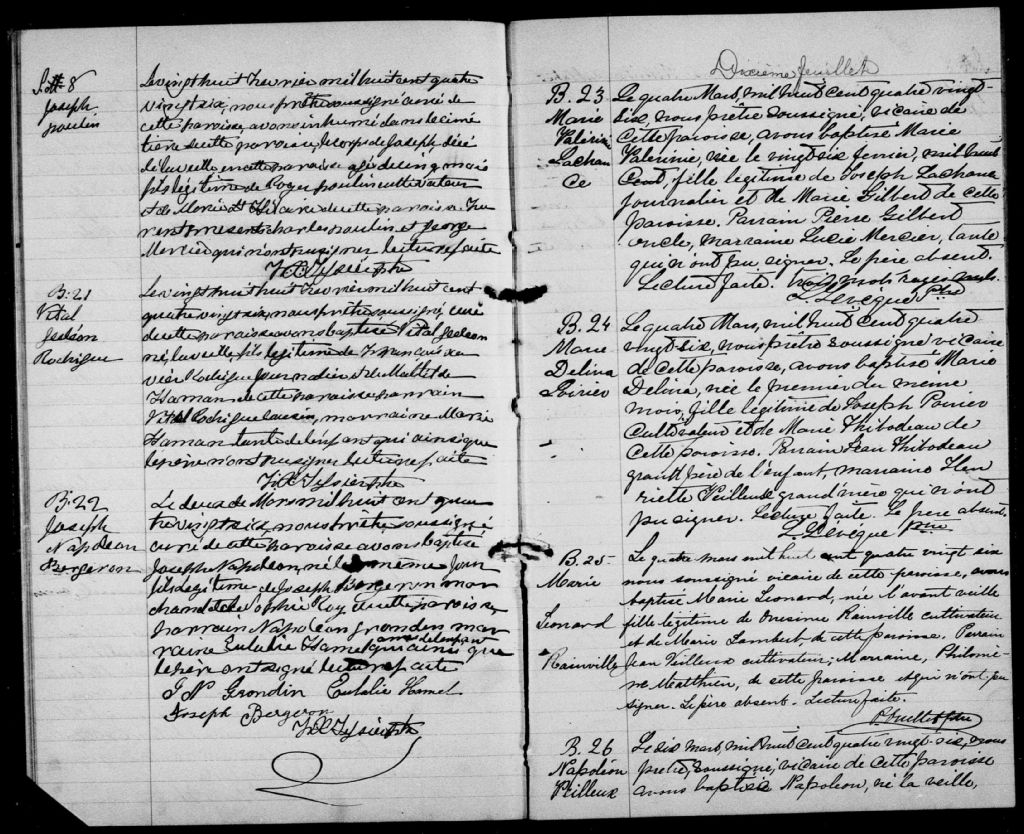 S. 8
Joseph
poulin
Le vingt huit Fevrier mil huit cent quatre
vingt six, nous prêtre soussigné curé de
cette paroisse, avons inhumé dans le cime
tiere de cette paroisse, le corps de Joseph décé
dé la veille en cette paroisse agé de cinq mois
fils legitime de Roger poulin cultivateur
et de Marie St Hilaire de cette paroisse Fu
rent present Charles poulin et George
Mercier qui n'ont pu signer lecture faite
B. 21
Vital
Gedéon
Rodrigue
Le vingt huit Fevrier mil huit cent
quatre vingt six, nous prêtre soussigné, curé
de cette paroisse avons baptisé Vital Gedeon
né, la veille, fils legitime de François Xa
vier Rodrigue Journalier et de Mathilde
Haman de cette paroisse parrain
Vital Rodrigue cousin, marraine Marie
Haman tante de l'enfant qui ainsi que
le père n'ont pu signer lecture faite
B. 22
Joseph
Napoléon
Bergeron
Le deux de Mars mil huit cent qua
tre vingt six, nous prêtre soussigné
curé de cette paroisse avons baptisé
Joseph Napoléon, né le même jour
fils legitime de Joseph Bergeron mar
chand et de Sophie Roy de cette paroisse
parrain Napoléon Grondin mar
raine Eulalie Hamel qui ainsi que
le père ont signé lecture faite
J N Grondin Eulalie Hamel
Joseph Bergeron
Dixième feuillet
B. 23
Marie
Valerinie
Lachan
ce
Le quatre Mars, mil huit cent quatre vingt-
six, nous prêtre soussigné, vicaire de
cette paroisse, avons baptisé Marie
Valerinie, née le vingt six fevrier, mil huit
cent, fille legitime de Joseph Lachance
journalier et de Marie Gilbert de cette
paroisse. Parrain Pierre Gilbert
oncle, marraine Lucie Mercier, tante
qui n'ont pu signer. Le père absent.
Lecture faite. trois mots rayés nuls.
L. Lévêque Ptre
B. 24
Marie
Delina
Poirier
Le quatre Mars, mil huit cent quatre
vingt-six, nous prêtre soussigné vicaire
de cette paroisse, avons baptisé Marie
Delina, née le premier du meme
mois, fille legitime de Joseph Poirier
Cultivateur et de Marie Thibodeau de
cette paroisse. Parrain Jean Thibodeau
grand'père de l'enfant, marraine Hen
riette Veilleux grand'mère qui n'ont
pu signer. Lecture faite. Le père absent.
L. Lévêque Ptre
B. 25
Marie
Leonard
Rainville
Le quatre mars mil huit cent quatre vingt six
nous soussigné vicaire de cette paroisse, avons
baptisé Marie Leonard, née l'avant veille
fille legitime de Onesime Rainville cultivateur
et de Marie Lambert, de cette paroisse. Parrain
Jean Veilleux cultivateur; Marraine, Philomè-
ne Matthieu, de cette paroisse et qui n'ont pu
signer. Le père absent. Lecture faite.
B. 26
Napoléon
Veilleux
Le six mars, mil huit cent quatre vingt-six, nous
prêtre, soussigné, vicaire de cette paroisse
avons baptisé Napoléon, né la veille,